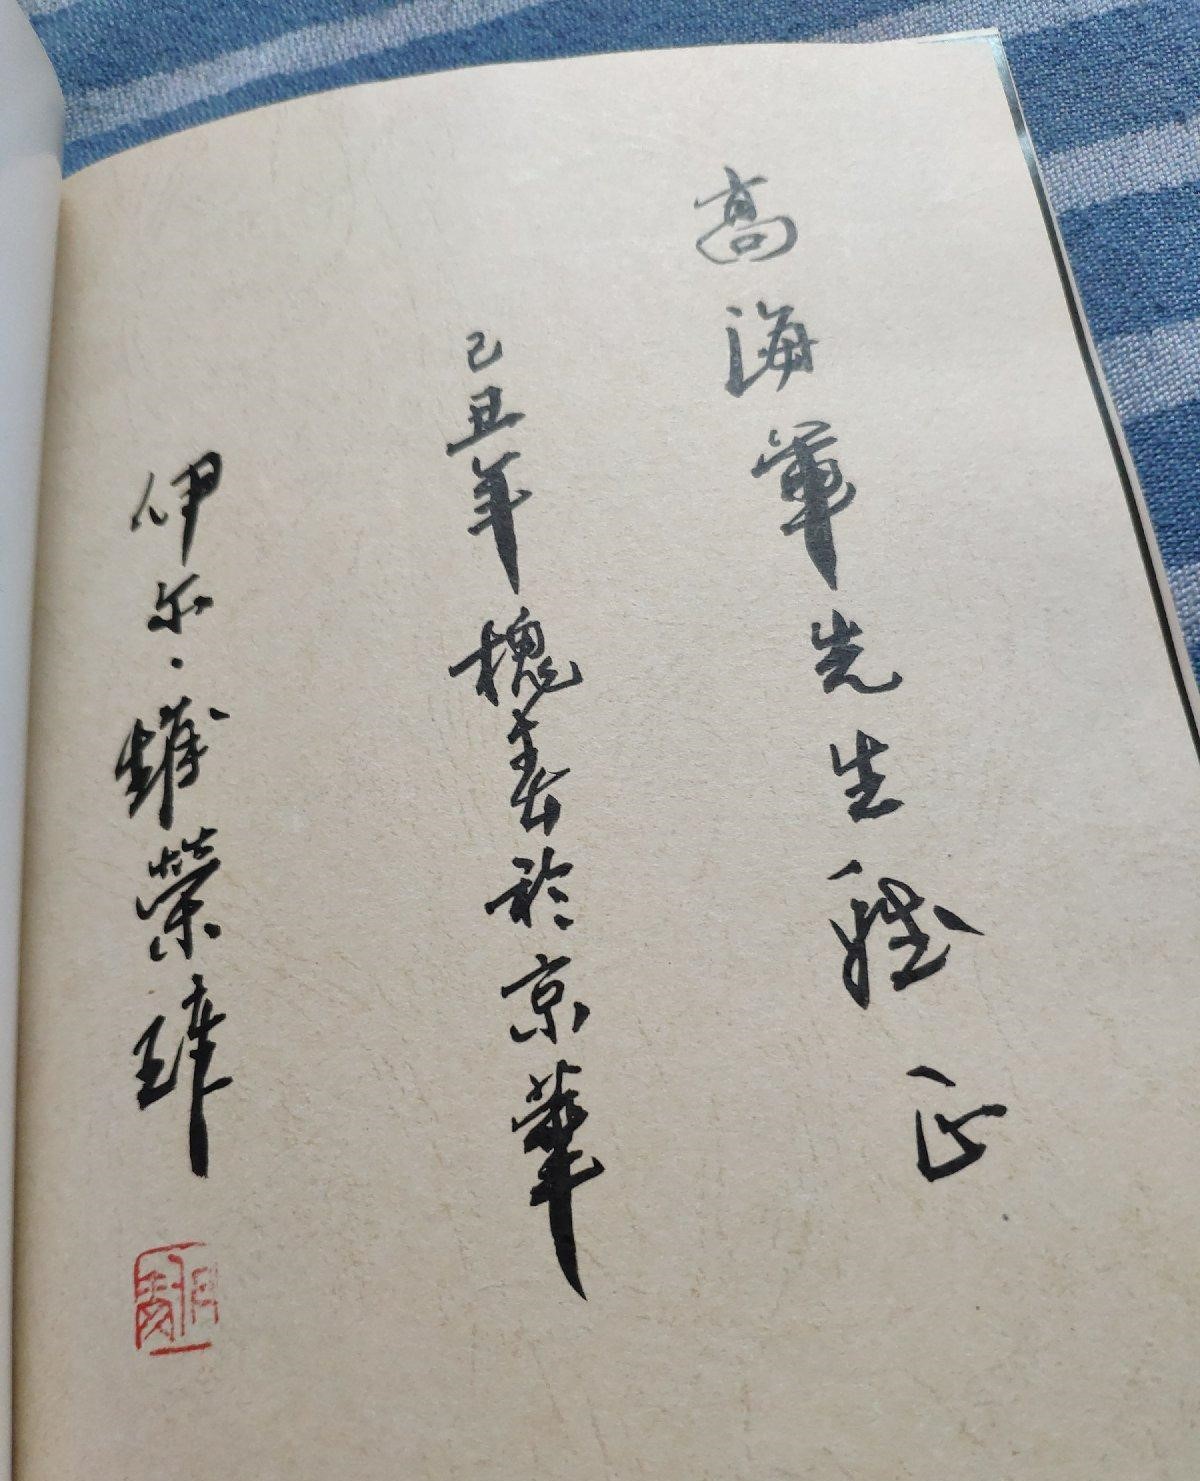 高海軍先生雅正
己丑年槐春於京華
伊尔·根荣璋